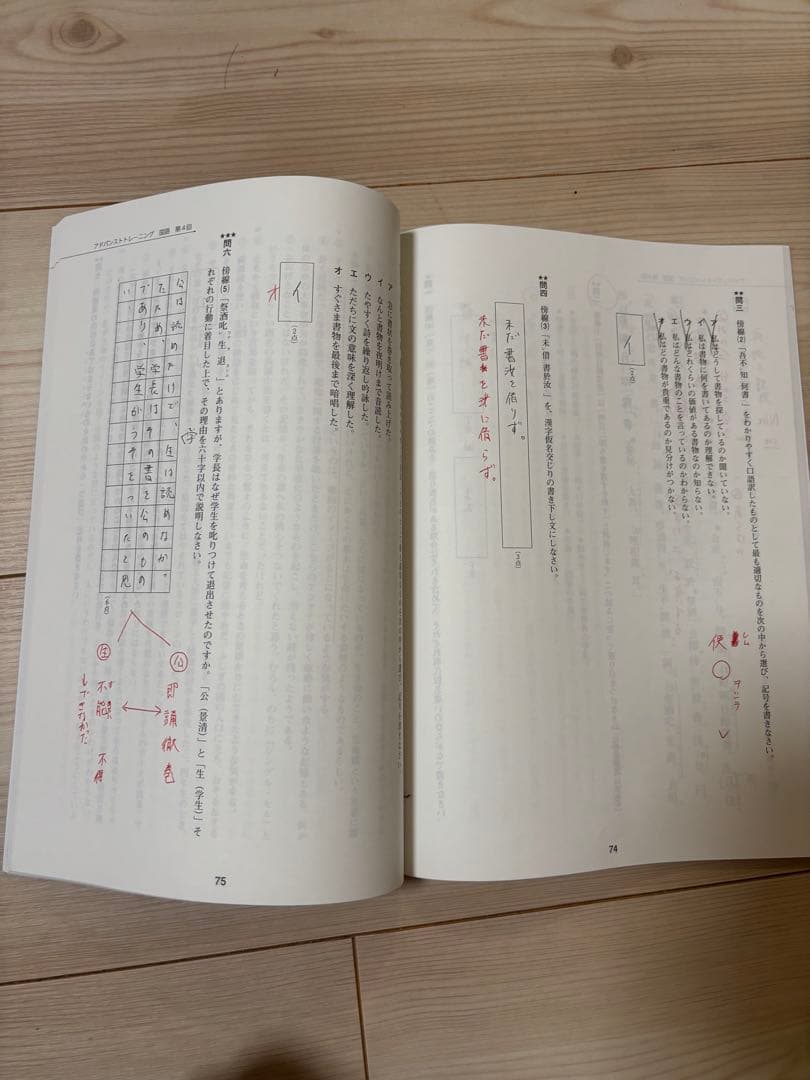 ★★問三 傍線(2)「吾不知何書」をわかりやすく口語訳したものとして最も適切なものを次の中から選び、記号を書きなさい。
ア 私はどうして書物を探しているのか聞いていない。
イ 私は書物に何を書いてあるのか理解できない。
ウ 私はどれくらいの価値がある書物なのか知らない。
エ 私はどんな書物のことを言っているのかわからない。
オ 私はどの書物が貴重であるのか見分けがつかない。
イ
(2点)
便
レム
ヲシテ
レ
★★問四 傍線(3)「未借書於汝」を、漢字仮名交じりの書き下し文にしなさい。
未だ書汝を借りず。
(3点)
未だ書を汝に借らず。
74
イ なんと書物を夜明けまで音読した。
ウ たやすく詩を繰り返し吟詠した。
エ ただちに文の意味を深く理解した。
オ すぐさま書物を最後まで暗唱した。
イ
(2点)
オ
★★★問六 傍線(5)「祭酒叱生退」とありますが、学長はなぜ学生を叱りつけて退出させたのですか。「公(景清)」と「生(学生)」そ
れぞれの行動に着目した上で、その理由を六十字以内で説明しなさい。
公は読めたけで、生は読めなか
ったため、学長はその書を公のもの
であり、学生がうそをついたと見
い
(6点)
学
公 即誦徹巻
生 不能 不得
す
もできなかった
アドバンストトレーニング 国語 第4回
75